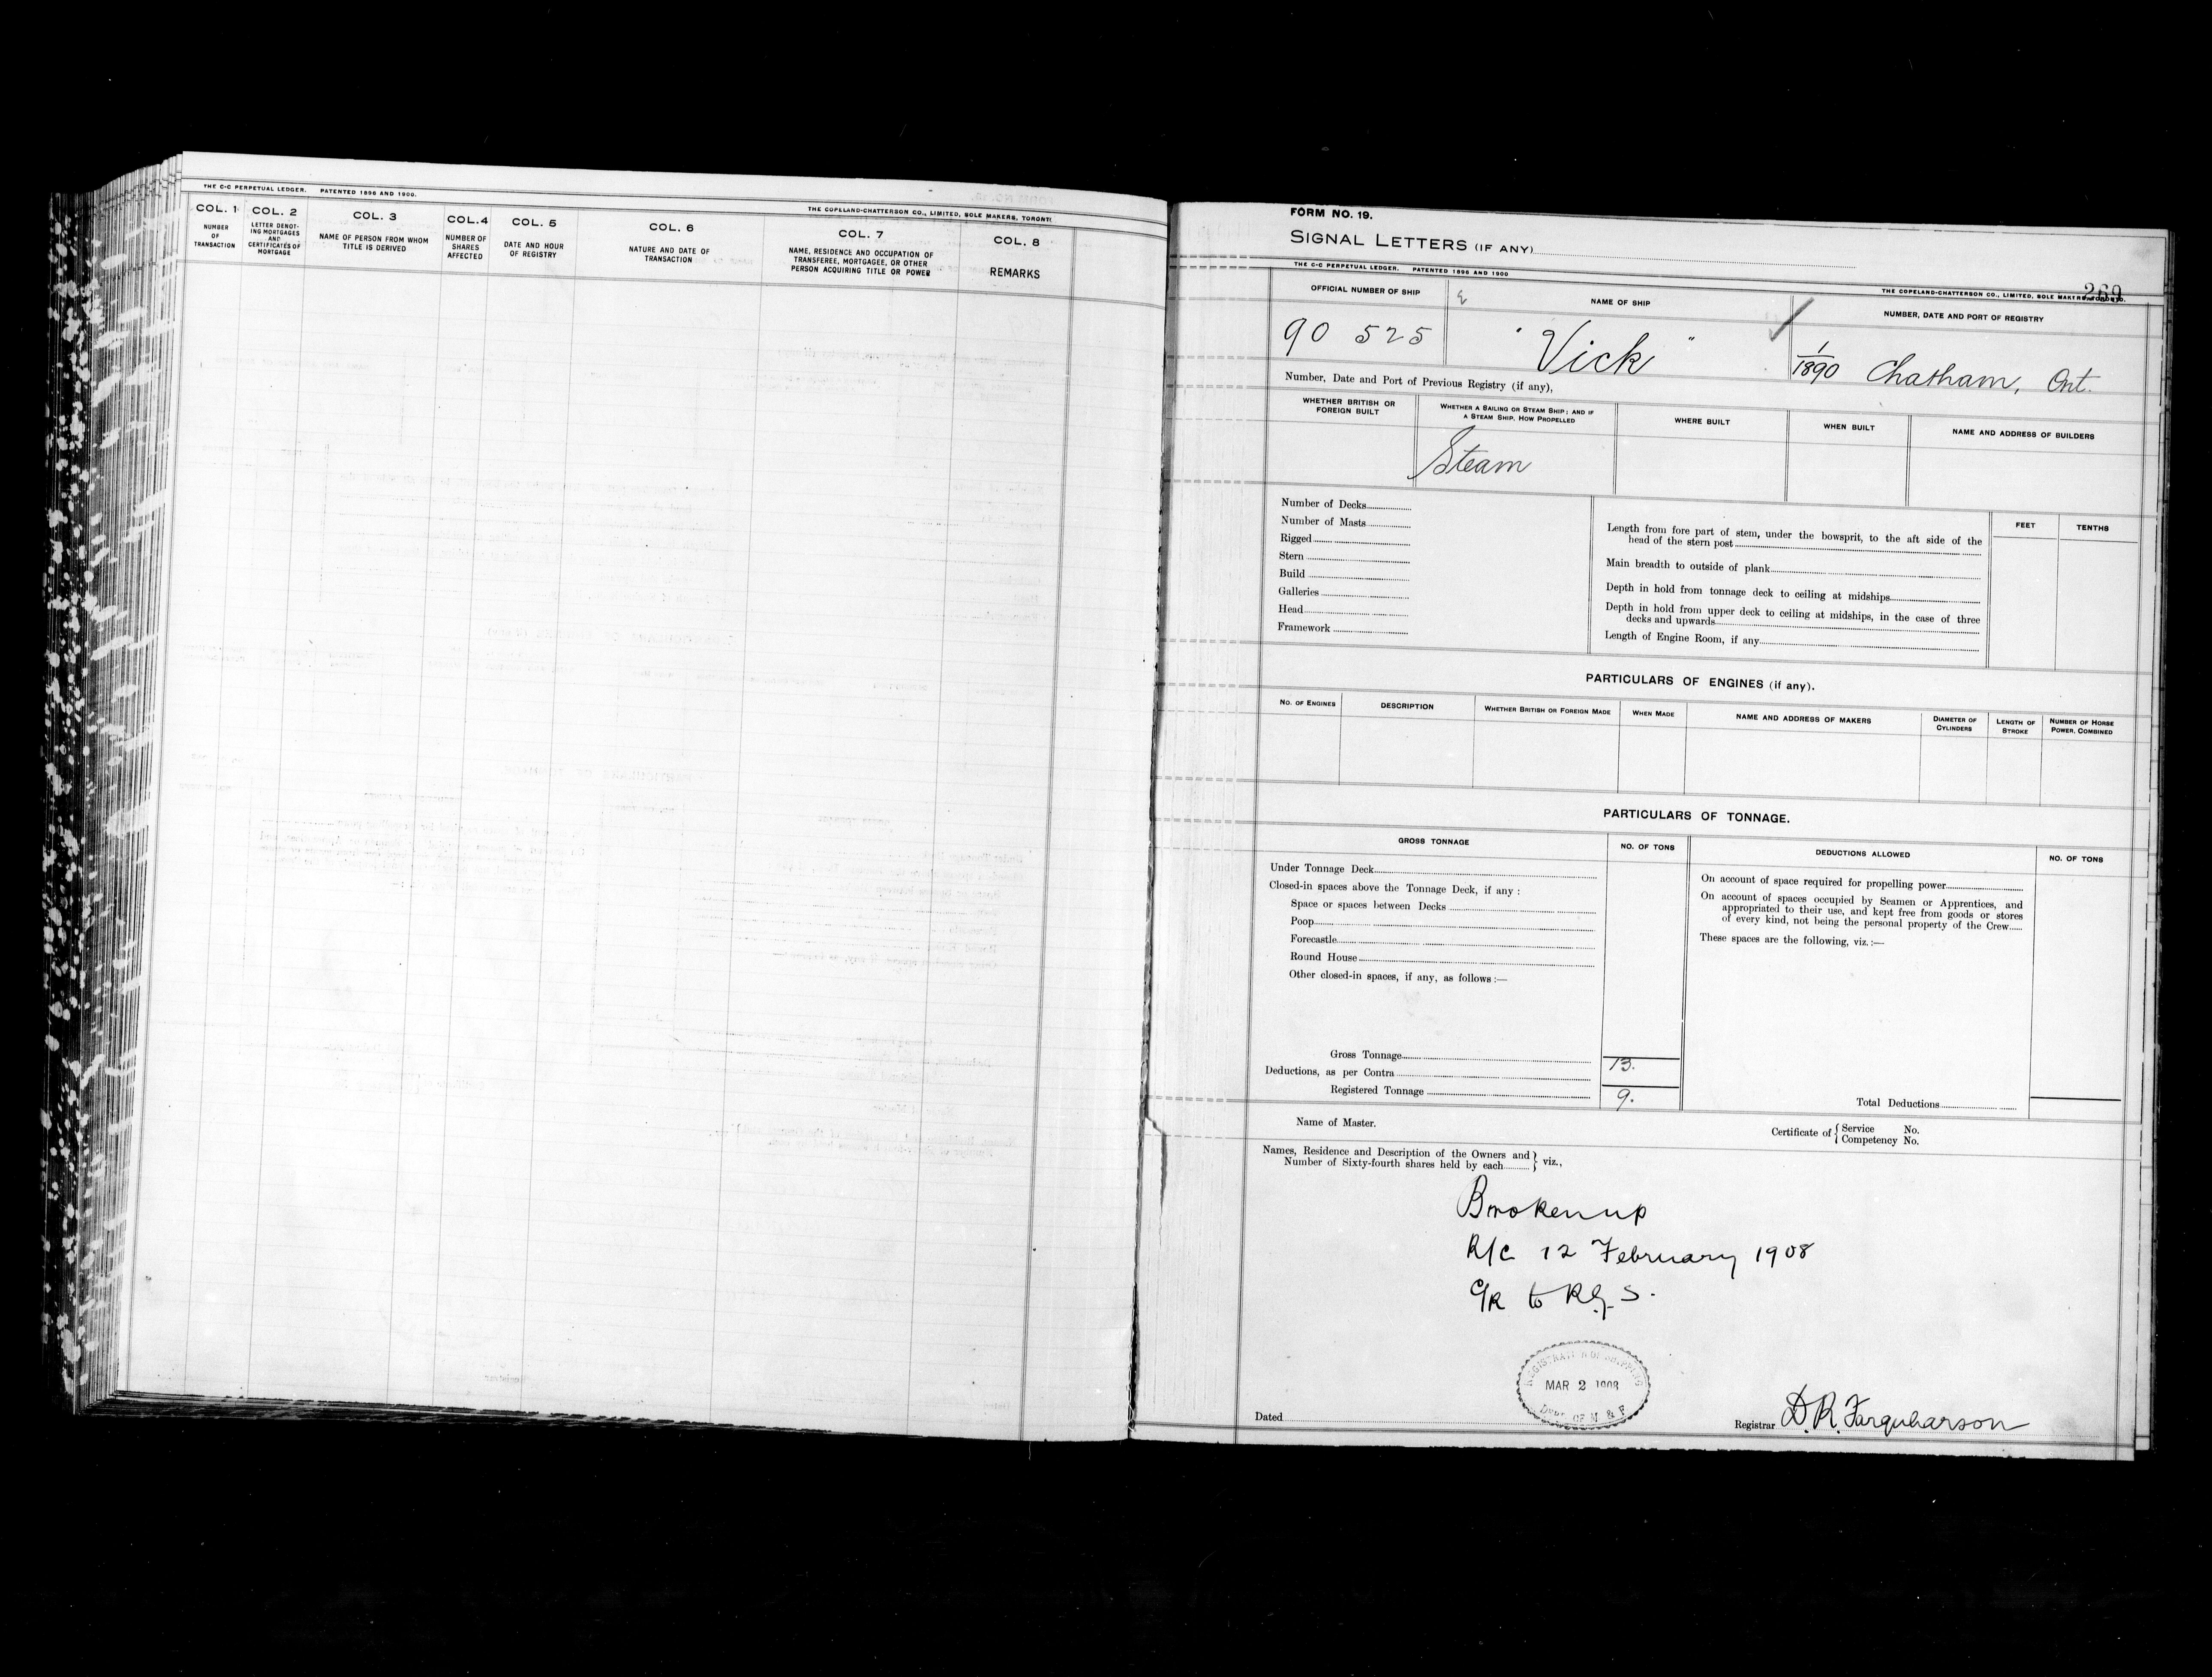 THE C-C PERPETUAL LEDGER. PATENTED 1896 AND 1900.
THE COPELAND-CHATTERSON CO., LIMITED, SOLE MAKERS, TORONT
COL. 1
NUMBER
OF
TRANSACTION
COL. 2
LETTER DENOT-
ING MORTGAGES
AND
CERTIFICATES OF
MORTGAGE
COL. 3
NAME OF PERSON FROM WHOM
TITLE IS DERIVED
COL. 4
NUMBER OF
SHARES
AFFECTED
COL. 5
DATE AND HOUR
OF REGISTRY
COL. 6
NATURE AND DATE OF
TRANSACTION
COL. 7
NAME, RESIDENCE AND OCCUPATION OF
TRANSFEREE, MORTGAGEE, OR OTHER
PERSON ACQUIRING TITLE OR POWER
COL. 8
REMARKS
FORM NO. 19.
SIGNAL LETTERS (IF ANY)
THE C-C PERPETUAL LEDGER. PATENTED 1896 AND 1900
THE COPELAND-CHATTERSON CO., LIMITED, SOLE MAKERS, TORONTO.
269
OFFICIAL NUMBER OF SHIP
NAME OF SHIP
NUMBER, DATE AND PORT OF REGISTRY
90 525
"Vick"
1/1890 Chatham, Ont.
Number, Date and Port of Previous Registry (if any),
WHETHER BRITISH OR
FOREIGN BUILT
WHETHER A SAILING OR STEAM SHIP; AND IF
A STEAM SHIP, HOW PROPELLED
WHERE BUILT
WHEN BUILT
NAME AND ADDRESS OF BUILDERS
Steam
Number of Decks
Number of Masts
Rigged
Stern
Build
Galleries
Head
Framework
FEET
TENTHS
Length from fore part of stem, under the bowsprit, to the aft side of the
head of the stern post
Main breadth to outside of plank
Depth in hold from tonnage deck to ceiling at midships
Depth in hold from upper deck to ceiling at midships, in the case of three
decks and upwards
Length of Engine Room, if any
PARTICULARS OF ENGINES (if any).
NO. OF ENGINES
DESCRIPTION
WHETHER BRITISH OR FOREIGN MADE
WHEN MADE
NAME AND ADDRESS OF MAKERS
DIAMETER OF
CYLINDERS
LENGTH OF
STROKE
NUMBER OF HORSE
POWER, COMBINED
PARTICULARS OF TONNAGE.
GROSS TONNAGE
NO. OF TONS
DEDUCTIONS ALLOWED
NO. OF TONS
Under Tonnage Deck
Closed-in spaces above the Tonnage Deck, if any :
Space or spaces between Decks
Poop
Forecastle
Round House
Other closed-in spaces, if any, as follows :—
On account of space required for propelling power
On account of spaces occupied by Seamen or Apprentices, and
appropriated to their use, and kept free from goods or stores
of every kind, not being the personal property of the Crew
These spaces are the following, viz. :—
Gross Tonnage
13.
Deductions, as per Contra
Registered Tonnage
9.
Total Deductions
Name of Master.
Certificate of { Service No.
Competency No.
Names, Residence and Description of the Owners and
Number of Sixty-fourth shares held by each } viz.,
Broken up
R/c 12 February 1908
C/R to Rg. S.
REGISTRATION OF SHIPPING
MAR 2 1908
DEPT. OF M & F
Dated
Registrar D.R. Farquharson